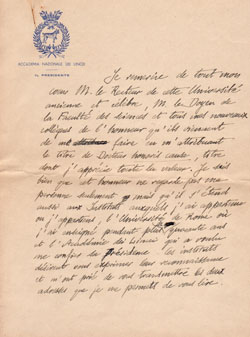 ACCADEMIA NAZIONALE DEI LINCEI
IL PRESIDENTE
Je remercie de tout mon
cœur M. le Recteur de cette Université
ancienne et célèbre, M. le Doyen de
la Faculté des Sciences et tous mes nouveaux
collègues de l'honneur qu'ils viennent
de me faire en m'attribuant
le titre de Docteur honoris causa, titre
dont j'apprécie toute la valeur. Je sais
bien que cet honneur ne regarde pas ma
personne seulement mais qu'il s'étend
aussi aux Instituts auxquels j'ai appartenu
ou j'appartiens, l'Université de Rome où
j'ai enseigné pendant quarante ans
et l'Académie des Lincei qui a voulu
me confier sa Présidence. Ces instituts
désirent vous exprimer leur reconnaissance
et m'ont prié de vous transmettre les deux
adresses que je me permets de vous lire.